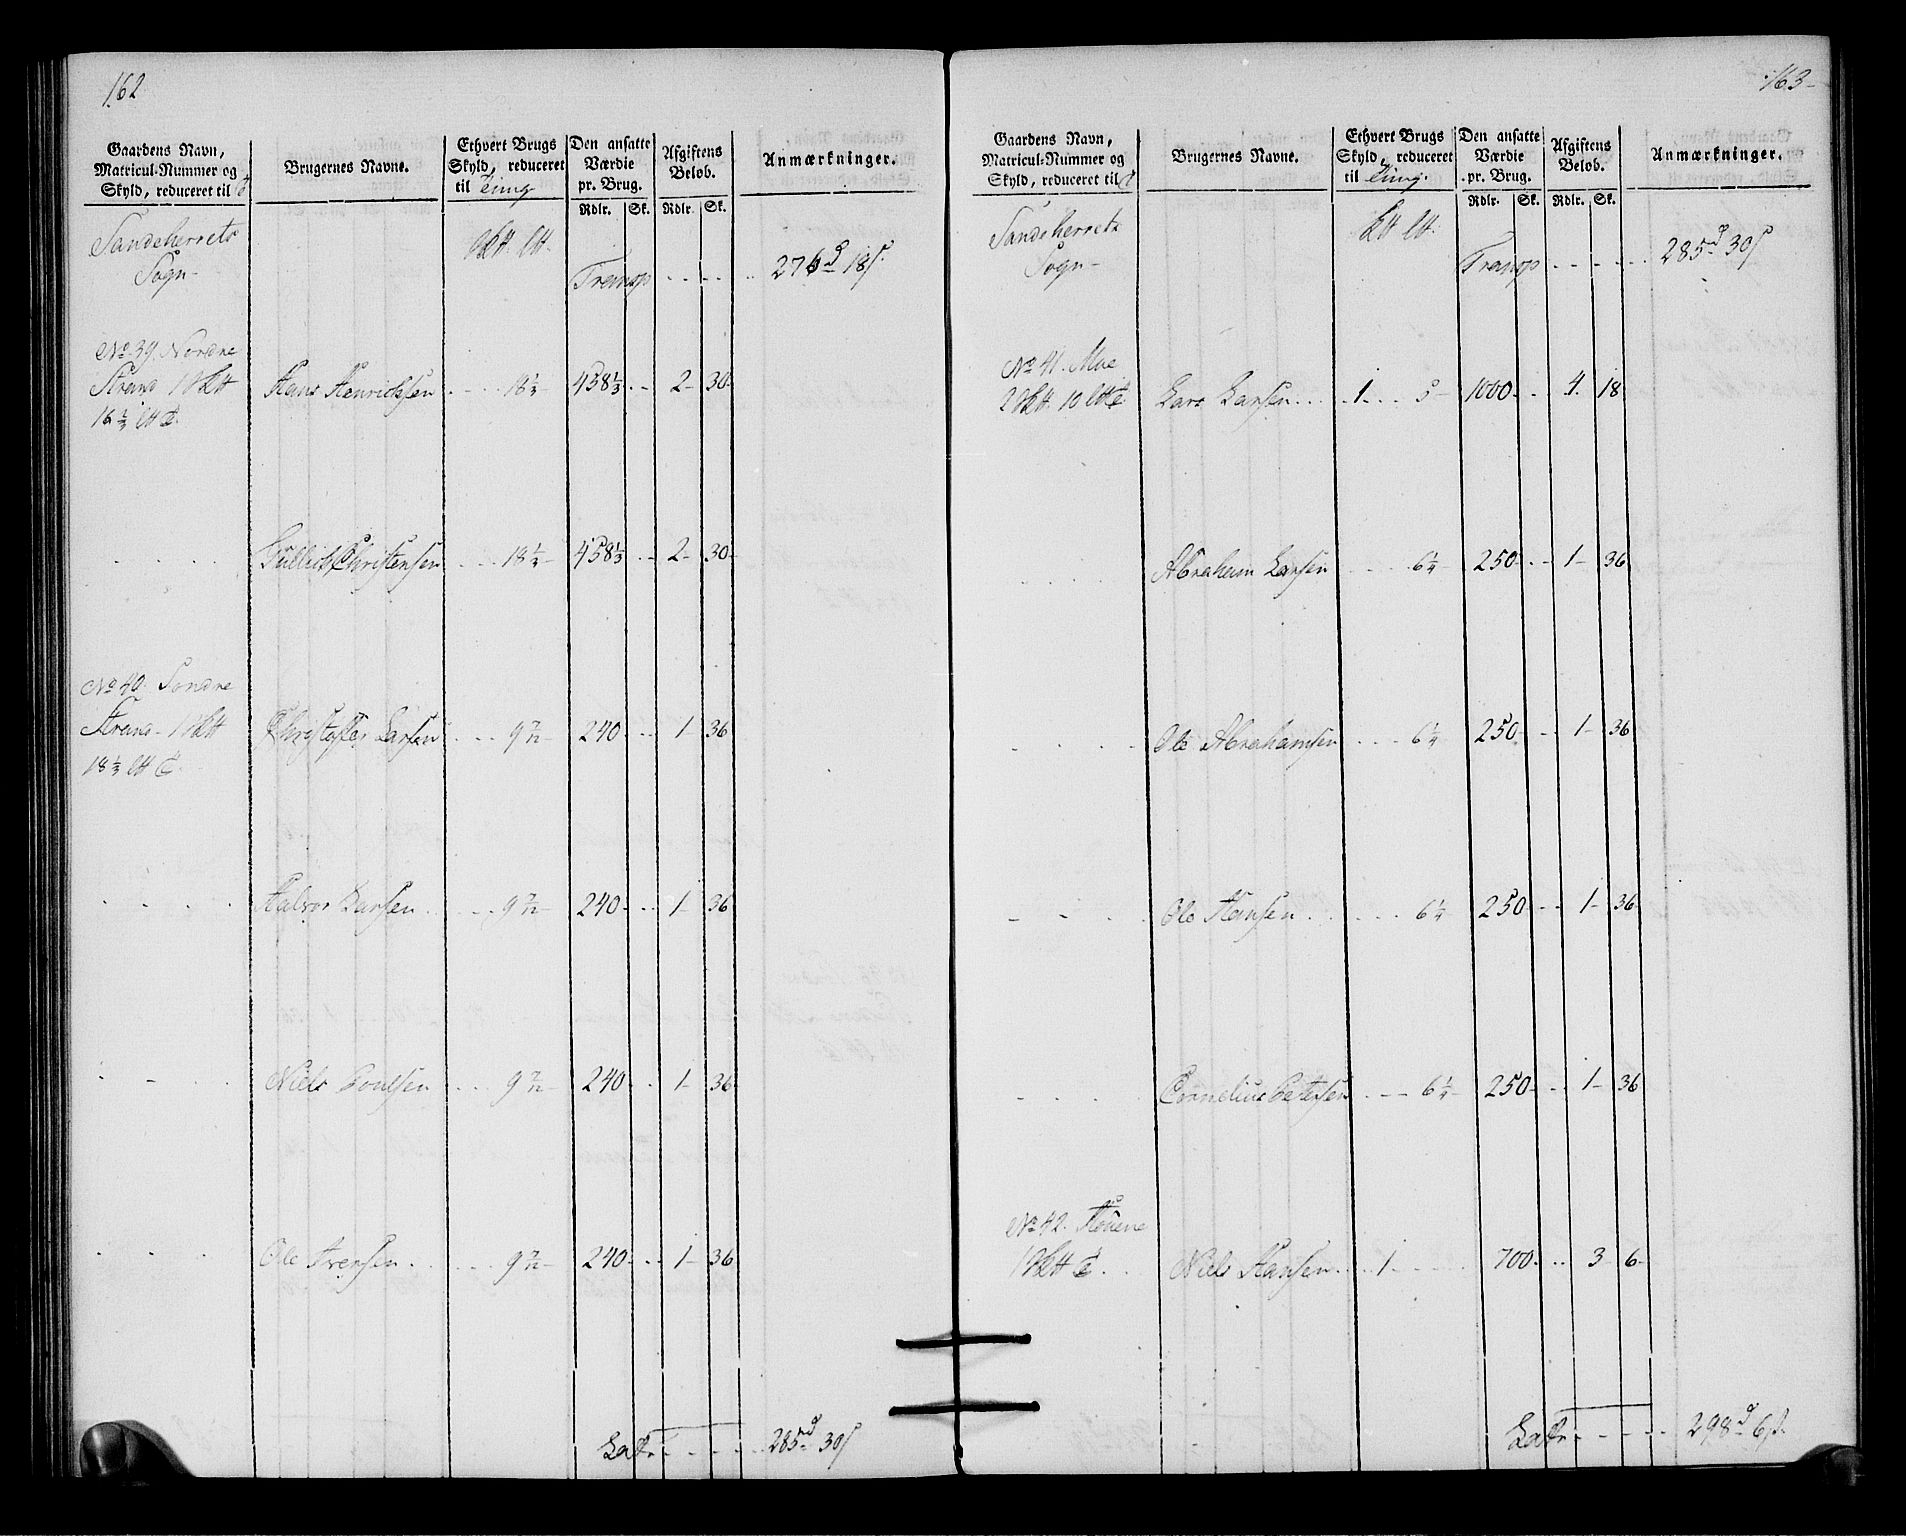 162
Gaardens Navn,
Matricul-Nummer og
Skyld, reduceret til
Brugernes Navne.
Ethvert Brugs
Skyld, reduceret
til Tung
Den ansatte
Værdie
pr. Brug.
Rdlr. Sk.
Afgiftens
Beløb.
Rdlr. Sk.
Anmærkninger.
Sandeherrets
Sogn
Transp 276 18
No. 39. Nordre
Strand 1
16 2/3
Hans Henrichsen 18 1/3 458 1/3 2 30
Gullich Christensen 18 1/3 458 1/3 2 30
No 40. Sondre
Strand 1
18 1/3
Christoffer Larsen 9 7/12 240 1 36
Halvor Larsen 9 7/12 240 1 36
Niels Poulsen 9 7/12 240 1 36
Ole Iversen 9 7/12 240 1 36
Lat. 285 30
163
Gaardens Navn,
Matricul-Nummer og
Skyld, reduceret til
Brugernes Navne.
Ethvert Brugs
Skyld, reduceret
til Tung
Den ansatte
Værdie
pr. Brug.
Rdlr. Sk.
Afgiftens
Beløb.
Rdlr. Sk.
Anmærkninger.
Sandeherrets
Sogn
Transp 285 30
No 41. Moe
2 10
Lars Larsen 1 5 1000 4 18
Abraham Larsen 6 1/4 250 1 36
Ole Abrahamsen 6 1/4 250 1 36
Ole Hansen 6 1/4 250 1 36
Cornelius Petersen 6 1/4 250 1 36
No 42.
1
Niels Hansen 1 700 3 6
Lat. 298 6